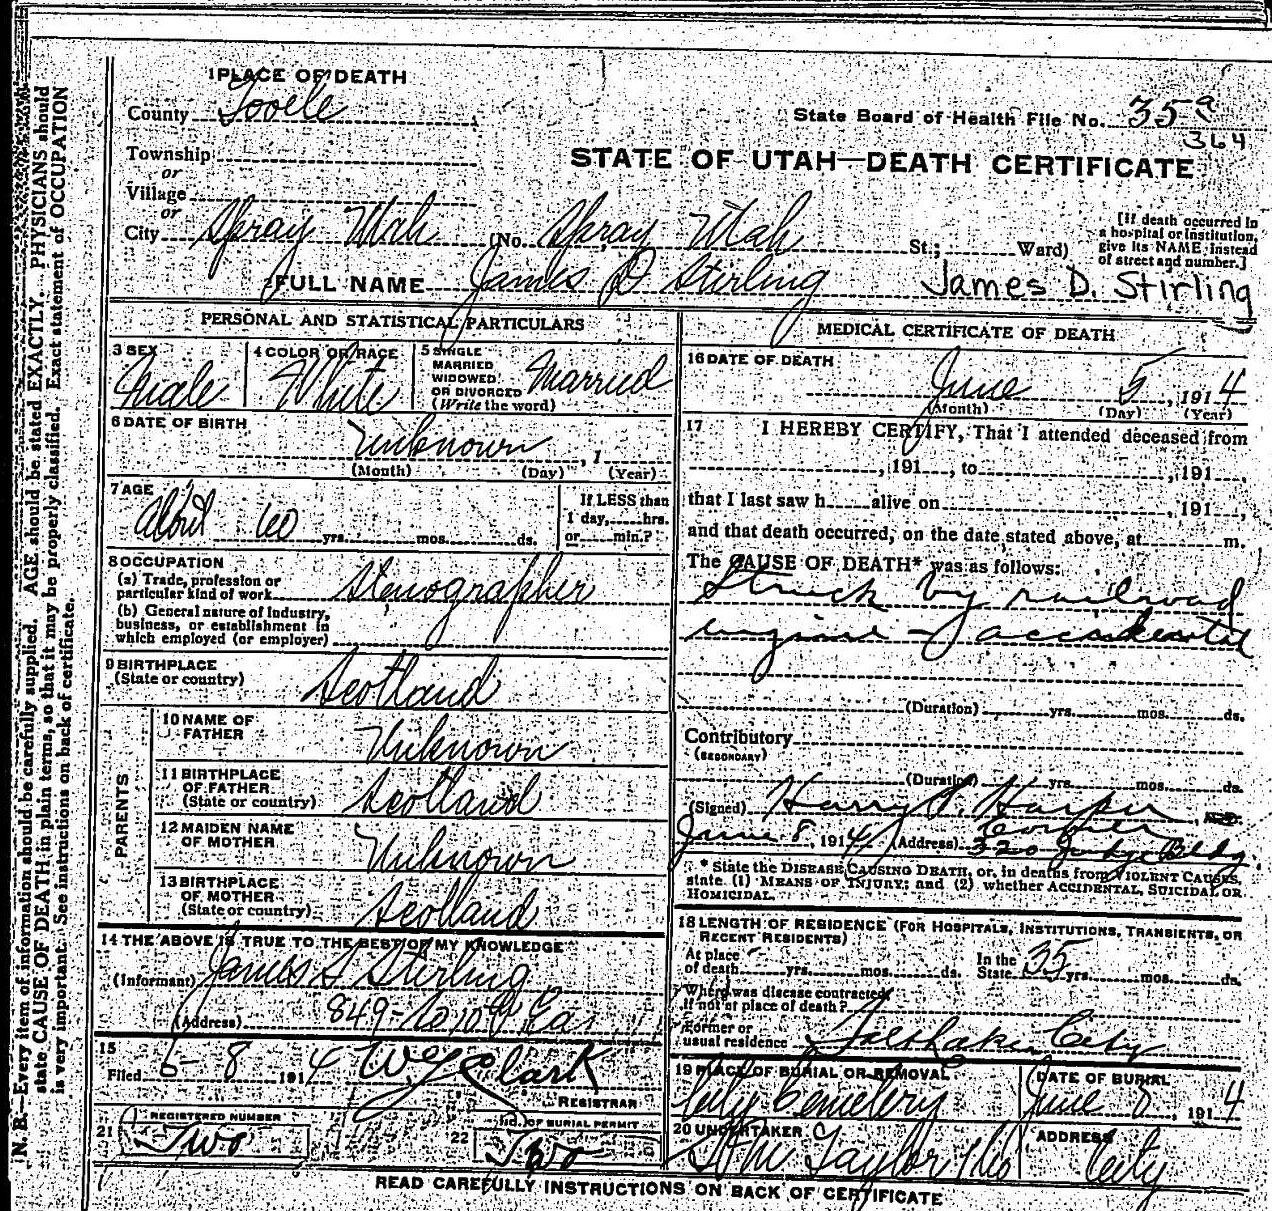 1 PLACE OF DEATH
County Tooele
State Board of Health File No. 35 a
364
Township
or
Village
or
City Spray Utah (No. Spray Utah St.; Ward)
STATE OF UTAH—DEATH CERTIFICATE
[If death occurred in
a hospital or institution,
give its NAME instead
of street and number.]
FULL NAME James D Stirling James D. Stirling
PERSONAL AND STATISTICAL PARTICULARS
3 SEX
Male
4 COLOR OR RACE
White
5 SINGLE
MARRIED
WIDOWED
OR DIVORCED
(Write the word)
Married
6 DATE OF BIRTH
Unknown , 1
(Month) (Day) (Year)
7 AGE
About 60 yrs. mos. ds.
If LESS than
1 day, hrs.
or min.?
8 OCCUPATION
(a) Trade, profession or
particular kind of work Stenographer
(b) General nature of industry,
business, or establishment in
which employed (or employer)
9 BIRTHPLACE
(State or country)
Scotland
PARENTS
10 NAME OF
FATHER
Unknown
11 BIRTHPLACE
OF FATHER
(State or country)
Scotland
12 MAIDEN NAME
OF MOTHER
Unknown
13 BIRTHPLACE
OF MOTHER
(State or country)
Scotland
14 THE ABOVE IS TRUE TO THE BEST OF MY KNOWLEDGE
(Informant) James S Stirling
(Address) 849 - 10 East
15
Filed 6 - 8 1914 Clark
REGISTRAR
21 REGISTERED NUMBER
Two
22 NO. OF BURIAL PERMIT
Two
MEDICAL CERTIFICATE OF DEATH
16 DATE OF DEATH
June 5 , 1914
(Month) (Day) (Year)
17 I HEREBY CERTIFY, That I attended deceased from
, 191 , to , 191 ,
that I last saw h alive on , 191 ,
and that death occurred, on the date stated above, at m.
The CAUSE OF DEATH* was as follows:
Struck by railroad
engine - accidental
(Duration) yrs. mos. ds.
Contributory
(SECONDARY)
(Duration) yrs. mos. ds.
(Signed) Harry S. Harper , M.D.
Coroner
June 8 , 1914 (Address) 320 Judge Bldg
* State the DISEASE CAUSING DEATH, or, in deaths from VIOLENT CAUSES,
state (1) MEANS OF INJURY; and (2) whether ACCIDENTAL, SUICIDAL OR
HOMICIDAL.
18 LENGTH OF RESIDENCE (FOR HOSPITALS, INSTITUTIONS, TRANSIENTS, OR
RECENT RESIDENTS)
At place
of death yrs. mos. ds.
In the
State 35 yrs. mos. ds.
Where was disease contracted
if not at place of death?
Former or
usual residence Salt Lake City
19 PLACE OF BURIAL OR REMOVAL
City Cemetery
DATE OF BURIAL
June 8 , 1914
20 UNDERTAKER
Taylor
ADDRESS
City
READ CAREFULLY INSTRUCTIONS ON BACK OF CERTIFICATE
N. B.—Every item of information should be carefully supplied. AGE should be stated EXACTLY. PHYSICIANS should
state CAUSE OF DEATH in plain terms, so that it may be properly classified. Exact statement of OCCUPATION
is very important. See instructions on back of certificate.